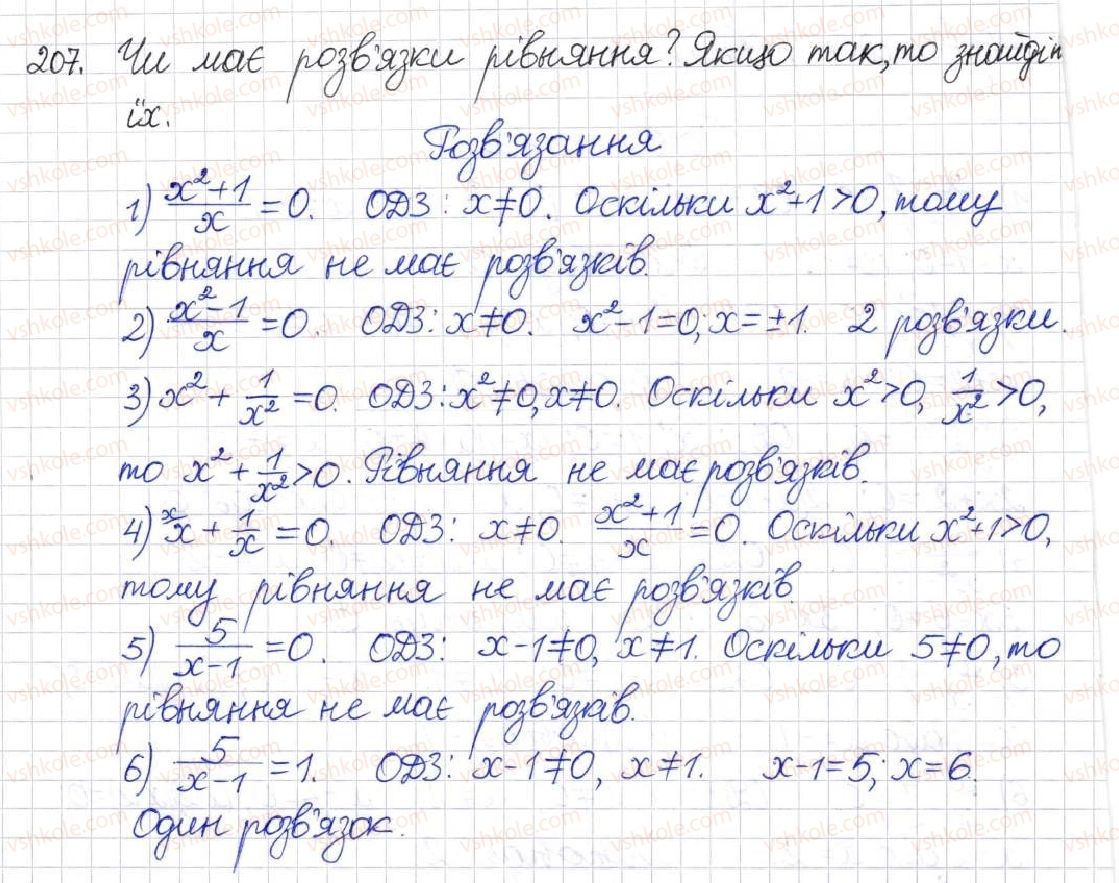 207. Чи має розв'язки рівняння? Якщо так, то знайдіть
їх.
Розв'язання
1) x²+1/x = 0. ОДЗ: x≠0. Оскільки x²+1>0, тому
рівняння не має розв'язків.
2) x²-1/x = 0. ОДЗ: x≠0. x²-1=0; x=±1. 2 розв'язки.
3) x² + 1/x² = 0. ОДЗ: x²≠0, x≠0. Оскільки x²>0, 1/x²>0,
то x² + 1/x² > 0. Рівняння не має розв'язків.
4) ˣx + 1/x = 0. ОДЗ: x≠0. x²+1/x = 0. Оскільки x²+1>0,
тому рівняння не має розв'язків.
5) 5/x-1 = 0. ОДЗ: x-1≠0, x≠1. Оскільки 5≠0, то
рівняння не має розв'язків.
6) 5/x-1 = 1. ОДЗ: x-1≠0, x≠1. x-1=5; x=6.
Один розв'язок.